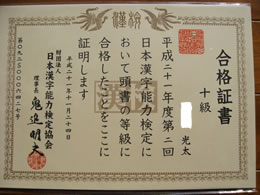 漢検
合格証書
十級
光太
平成二十一年度第二回
日本漢字能力検定に
おいて頭書の等級に
合格したことをここに
証明します
平成二十一年十一月二十四日
財団法人
日本漢字能力検定協会
理事長 鬼追明夫